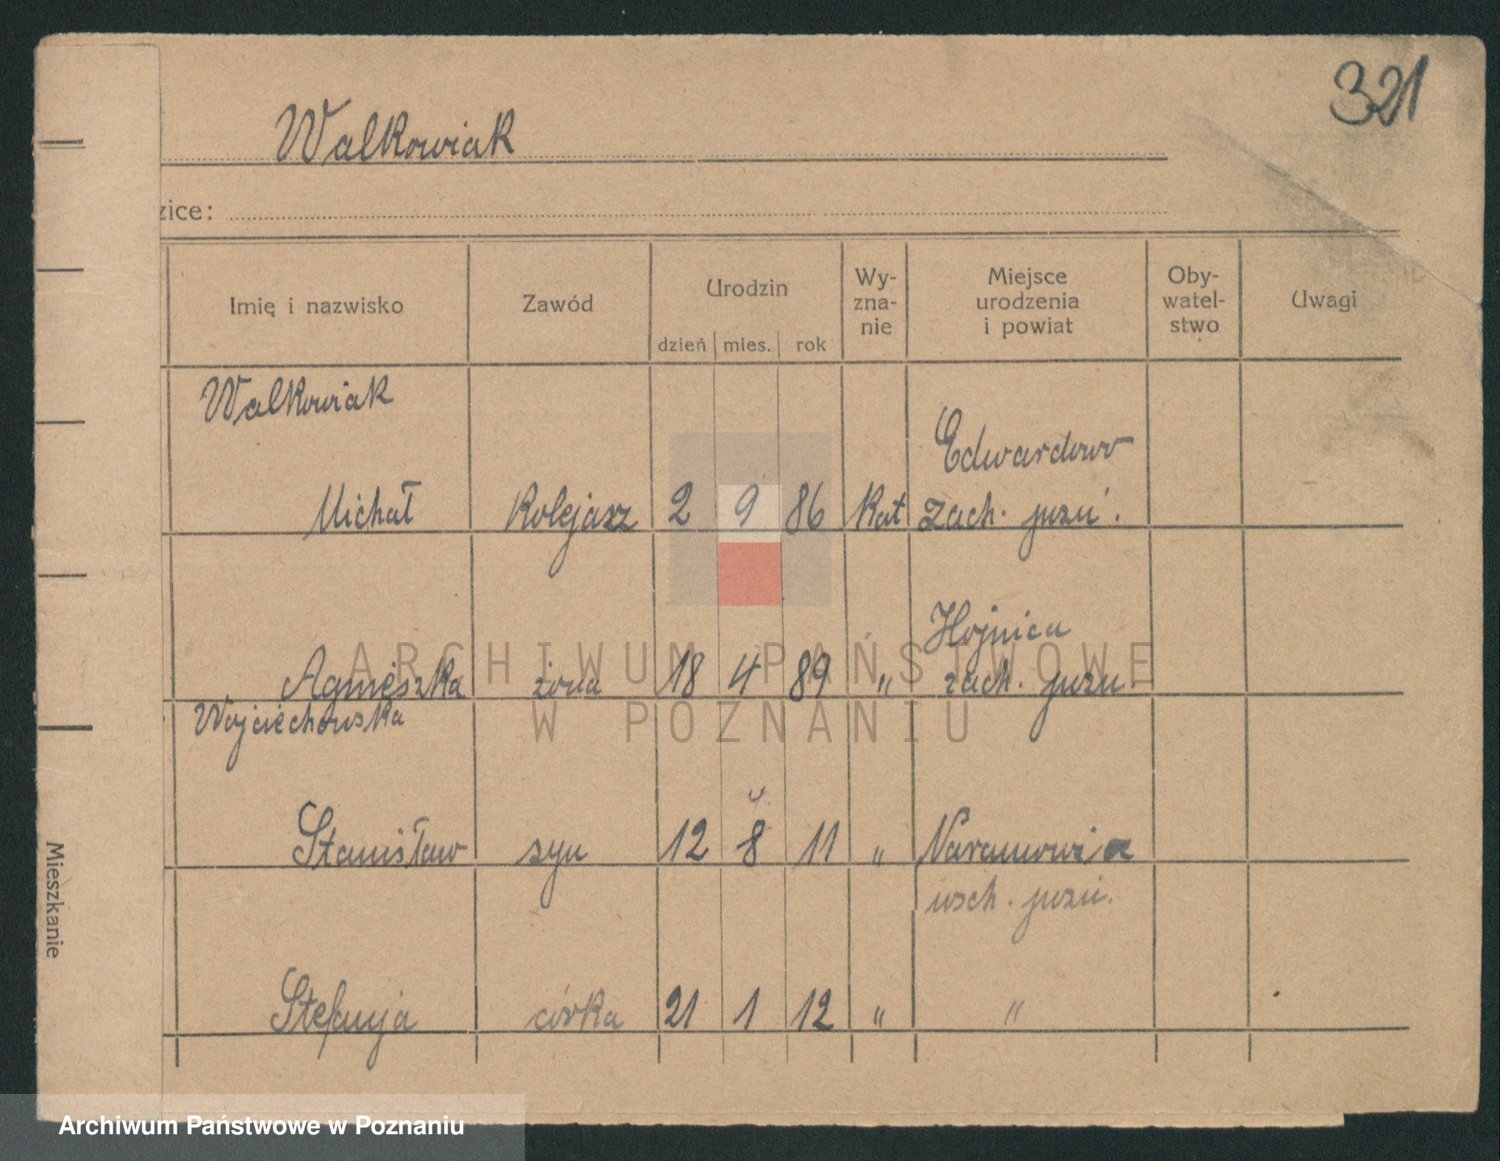 321
Walkowiak
zice:
Imię i nazwisko Zawód Urodzin Wy- Miejsce Oby- Uwagi
zna- urodzenia watel-
nie i powiat stwo
dzień mies. rok
Walkowiak
Edwardowo
Michał Kolejarz 2 9 86 Kat zach. pozń.
Hojnica
Agnieszka żona 18 4 89 " zach. pozn.
Wojciechowska
Stanisław syn 12 8 11 "
wsch. pozń.
Stefanja córka 21 1 12 " "
Mieszkanie
ARCHIWUM PAŃSTWOWE
W POZNANIU
Archiwum Państwowe w Poznaniu